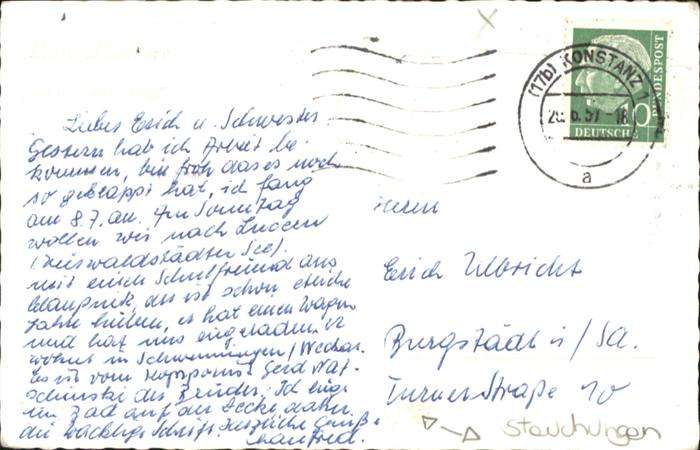 Liebes Erich u. Schwester
Gestern hab ich Arbeit be-
kommen, bin froh das es noch
so geklappt hat, ich fang
am 8.7. an. Am Sonntag
wollen wir nach Luzern
(Vierwaldstädter See).
mit einem Schulfreund aus
der ist schon etliche
Jahre hüben, er hat einen Wagen
und hat uns eingeladen. Er
wohnt in Schwenningen/Neckar.
Es ist vom Gerd
der Bruder. Ich liege
im Bad auf der Decke, daher
die wacklige Schrift. Herzliche Grüße
Manfred.
(17b) KONSTANZ 1
20.6.57-18
a
DEUTSCHE
BUNDESPOST
10
Herrn
Erich Ulbricht
Burgstädt i/Sa.
Turner Straße 10
Stauchungen